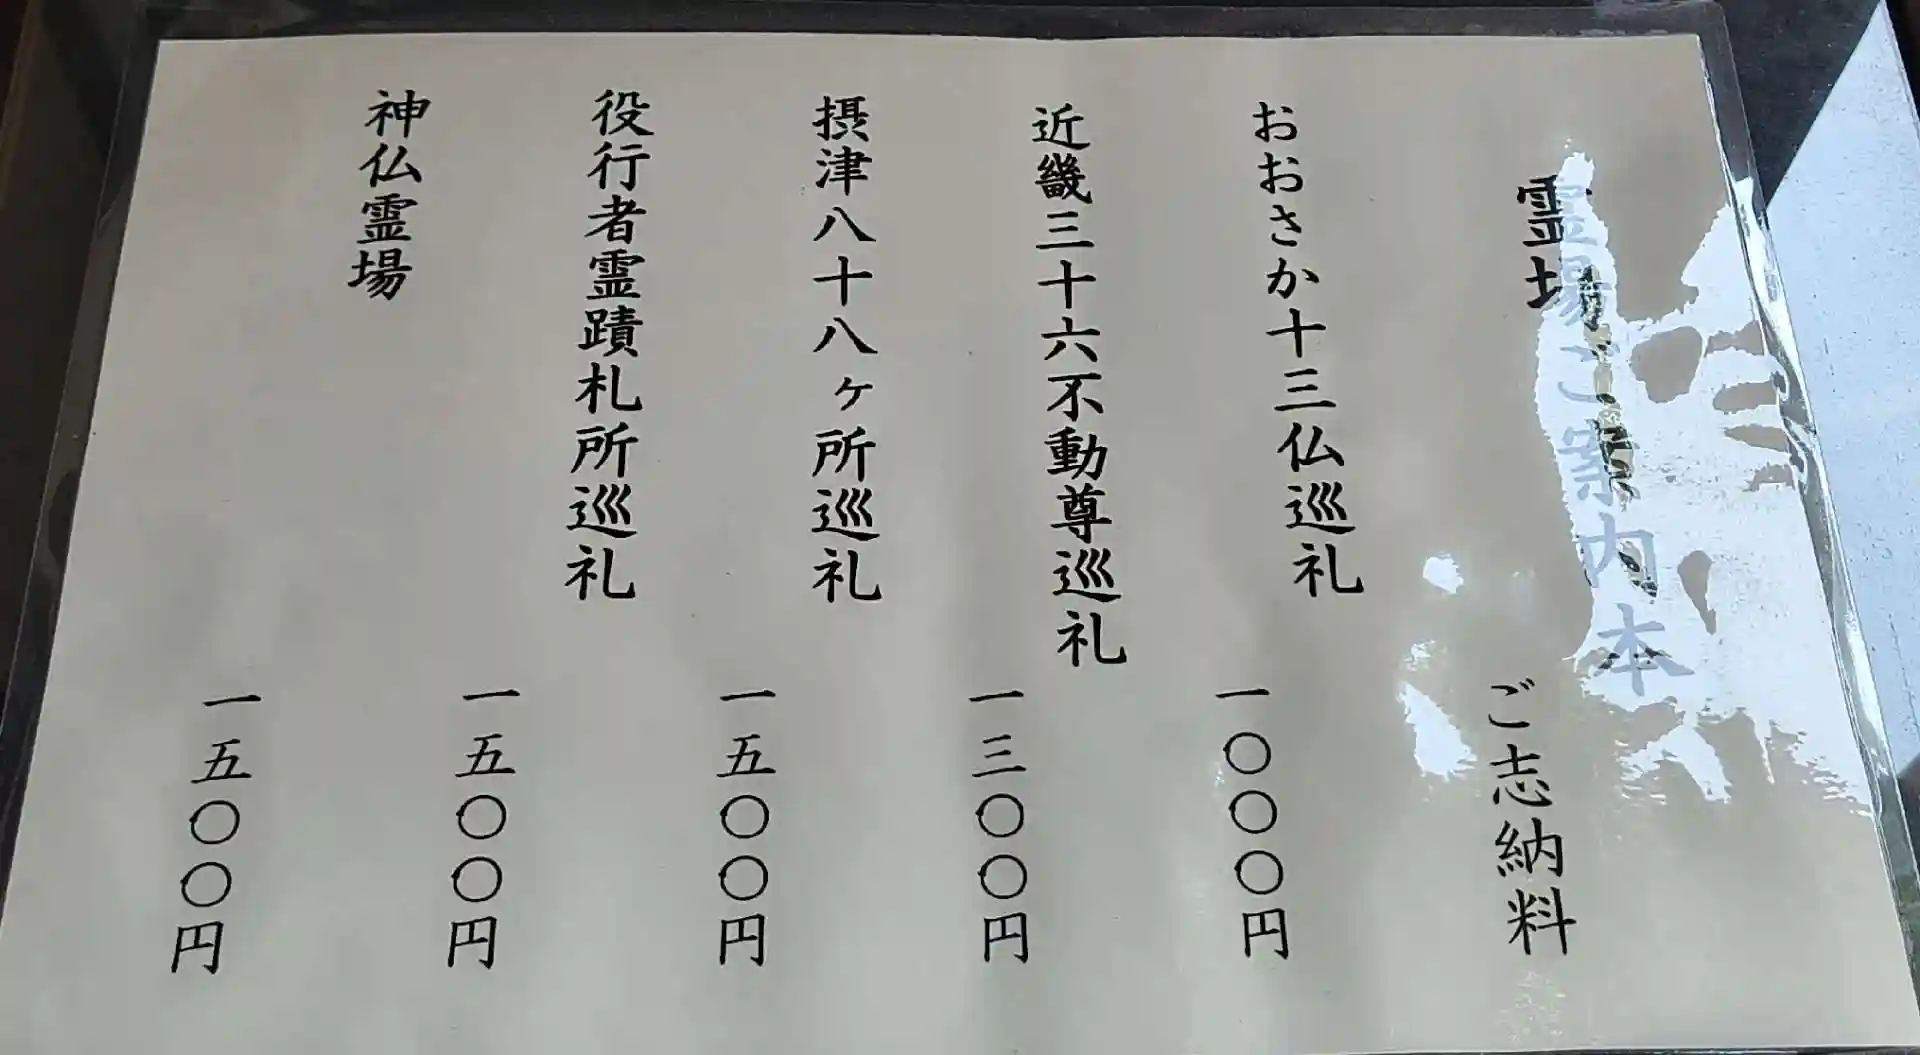 霊場ご案内本 ご志納料
おおさか十三仏巡礼 一〇〇〇円
近畿三十六不動尊巡礼 一三〇〇円
摂津八十八ヶ所巡礼 一五〇〇円
役行者霊蹟札所巡礼 一五〇〇円
神仏霊場 一五〇〇円